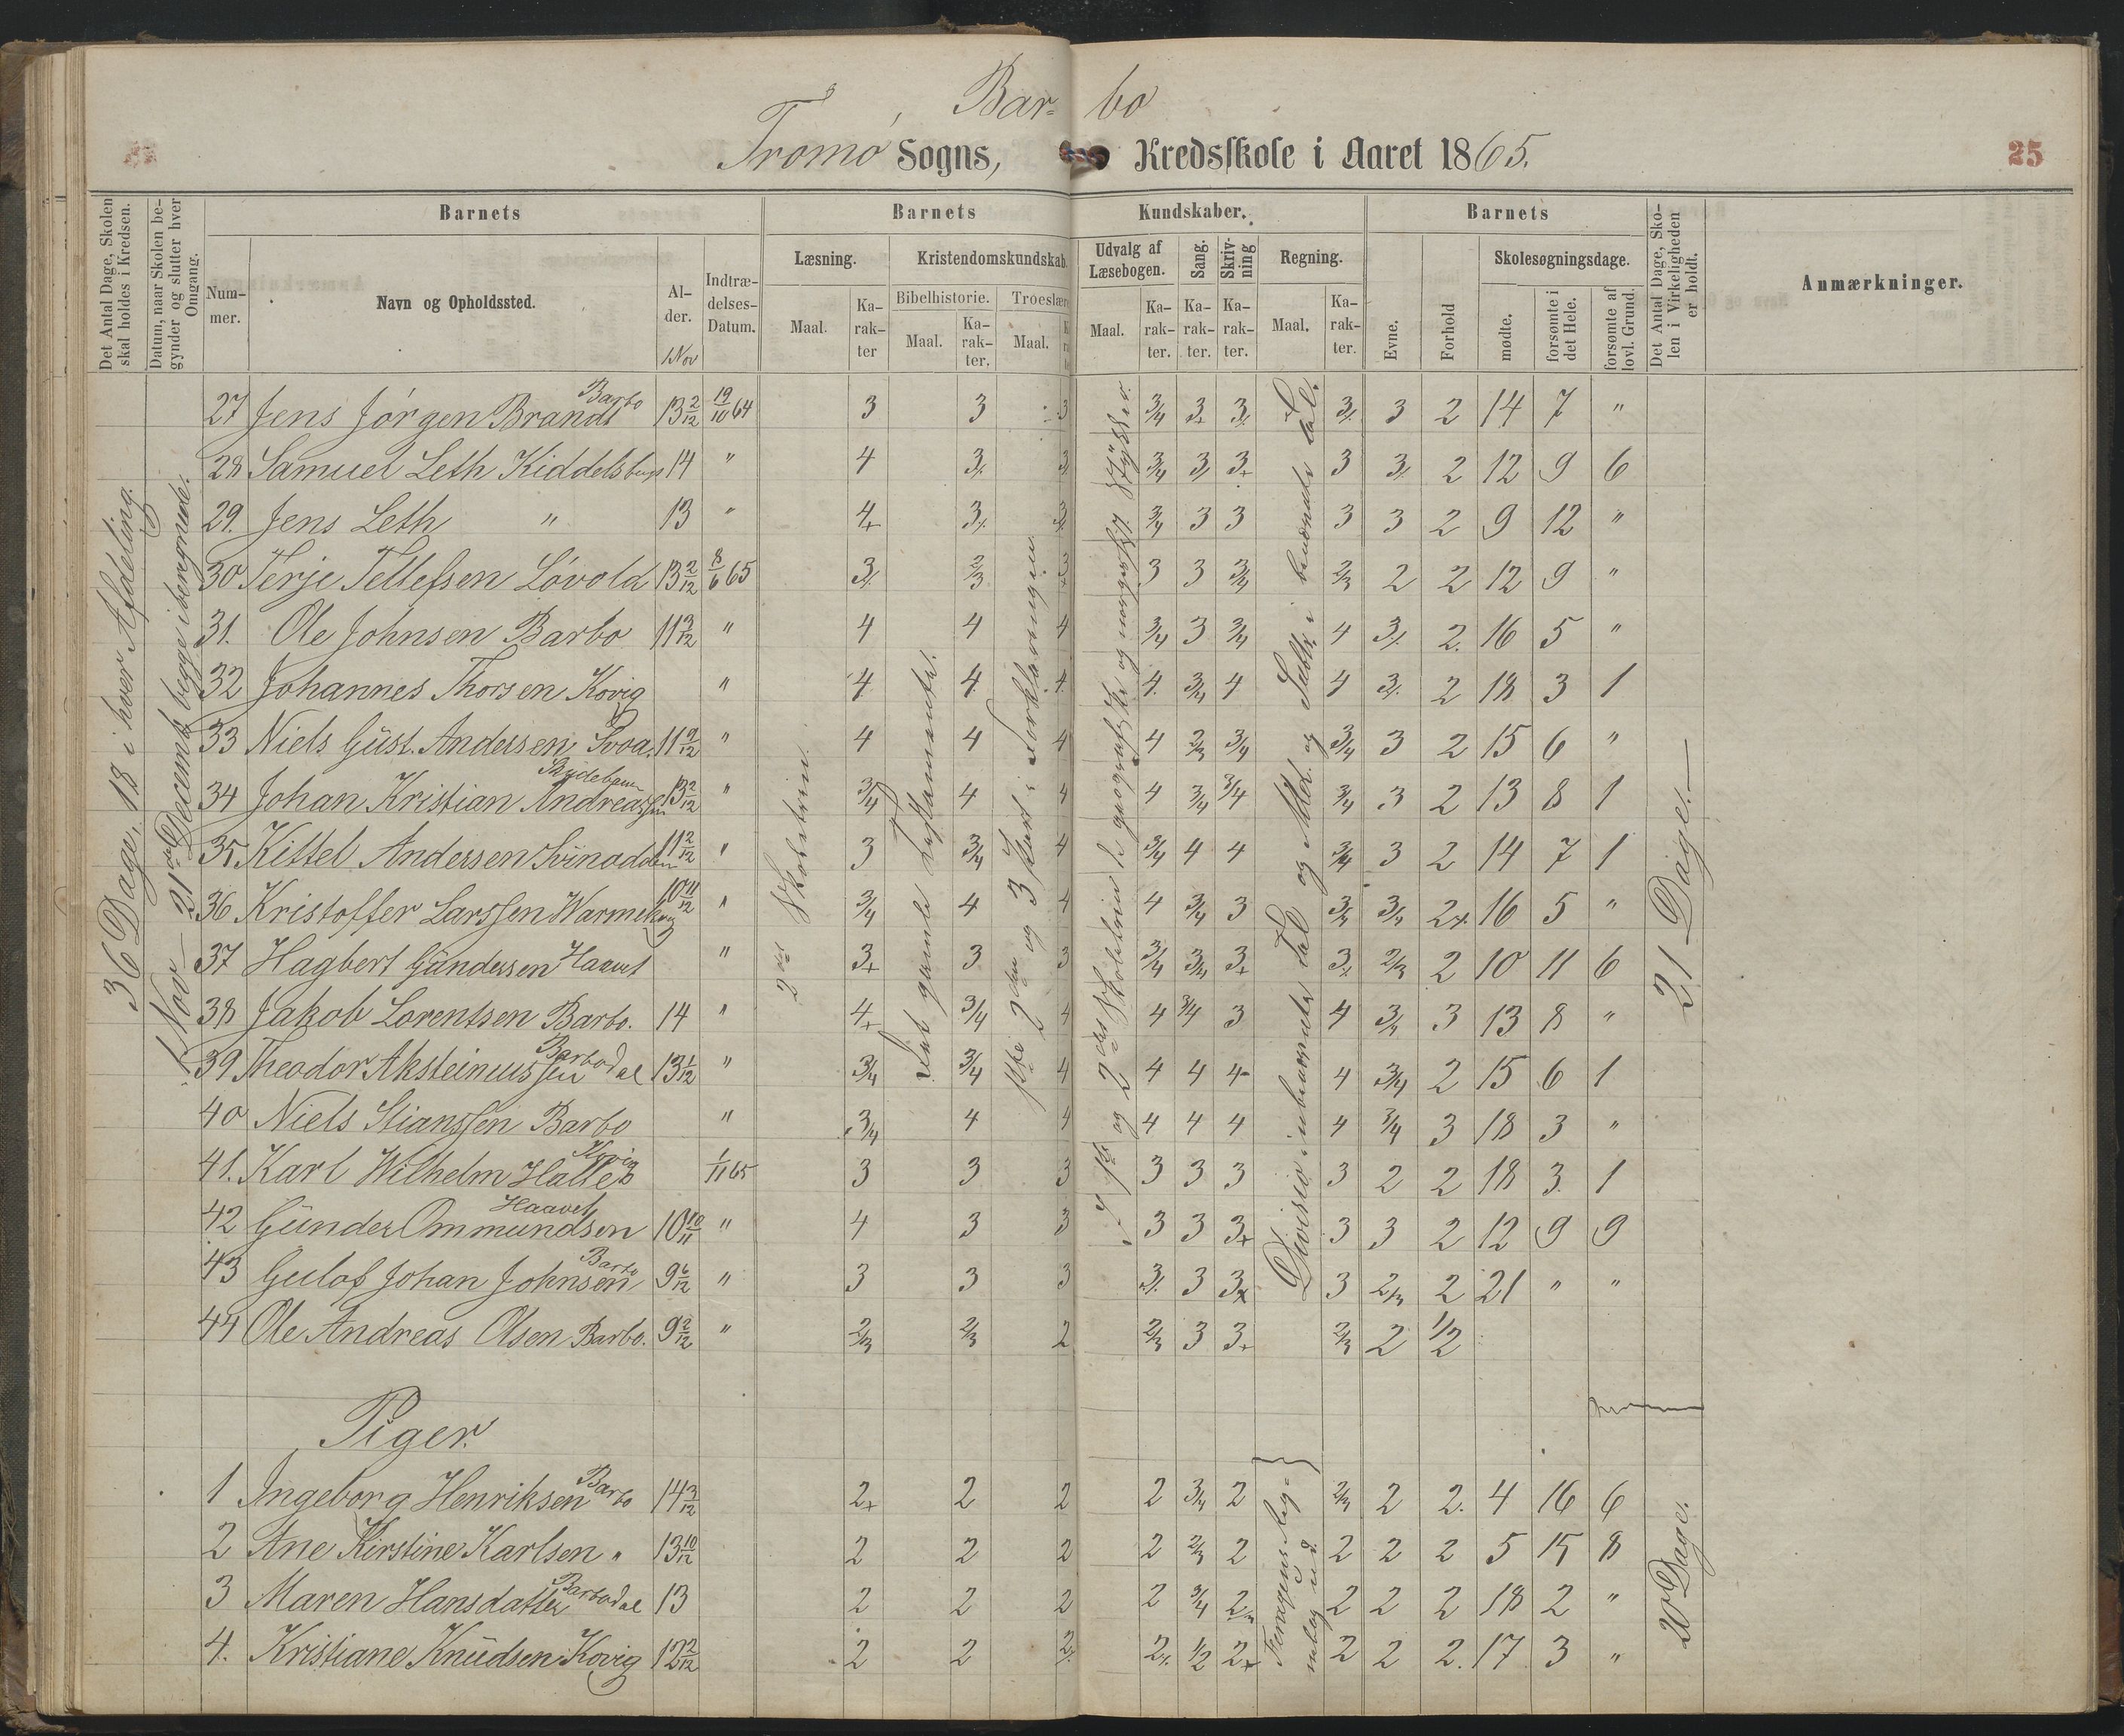 Bar- bo
Tromø Sogns, Kredsskole i Aaret 1865.
25
Det Antal Dage, Skolen skal holdes i Kredsen.
Datum, naar Skolen begynder og slutter hver Omgang.
Barnets
Nummer.
Navn og Opholdssted.
Alder.
1 Nov
Indtrædelses-Datum.
Barnets Kundskaber.
Læsning.
Maal.
Karakter
Kristendomskundskab.
Bibelhistorie.
Maal.
Karakter.
Troeslære
Maal.
Udvalg af Læsebogen.
Maal.
Karakter.
Sang.
Karakter.
Skrivning
Karakter.
Regning.
Maal.
Karakter.
Barnets
Evne.
Forhold
Skolesøgningsdage.
mødte.
forsømte i det Hele.
forsømte af lovl. Grund.
Det Antal Dage, Skolen i Virkeligheden er holdt.
Anmærkninger.
36 Dage, 18 i hver Afdeling.
1 Nov – 21de Decemb begge iberegnede.
2det Skoletrin.
Det gamle Testamente.
1ste 2den og 3 Part i Forklaringen.
1ste og 2det Skoletrin de geografiske og norgesh. Stykker.
Divisio i ubenævnte Tal og Add. og Subtr. i benævnte Tal.
21 Dage.
27 Jens Jørgen Brandt Barbo 13 2/12 19/10 64 3 3 3 3/4 3+ 3/. 3/. 3 2 14 7 "
28 Samuel Leth Kiddelsburg 14 " 4 3/. 3/. 3/4 3/ 3+ 3 3/. 2 12 9 6
29. Jens Leth " 13 " 4+ 3/. 3/. 3/4 3 3 3 3 2 9 12 "
30 Terje Tellefsen Løvold 13 2/12 8/6 65 3/. 2/3 3+ 3 3 3/4 2/3 2 2 12 9 "
31. Ole Johnsen Barbo 11 3/12 " 4 4 4 3/4 3 3/4 4 3/. 2. 16 5 "
32 Johannes Thorsen Kovig " 4 4. 4. 4. 3/4 4 4 3/. 2 18 3 1
33 Niels Güst. Andersen Svoa. 11 9/12 " 4 4 4 4 2/3 3/4 3/4 3 2 15 6 "
34 Johan Kristian Andreassen 13 2/12 " 3/4 4 4 4 3/4 3/4 3/4 3 2 13 8 1
35 Kittel Andersen Svinodden 11 2/12 " 3 3/4 4 3/4 4 4 3/4 3 2 14 7 1
36 Kristoffer Larssen 10 11/12 " 3/4 4 4 4 3/4 3 3/4 3/4 2+ 16 5 "
37 Hagbert Gündersen Haavet " 3+ 3 3 3/4 3/4 3+ 3+ 2/3 2 10 11 6
38 Jakob Lorentsen Barbo. 14 " 4+ 3/4 4 4 3/4 3 4 3/4 3 13 8 "
39 Theodor Aksteinussen Barbodal 13 1/12 " 3/4 3/4 4 4 4 4- 4 3/4 2 15 6 1
40 Niels Stianssen Barbo " 3/4 4 4 4 4 4 4 3/4 3 18 3 "
41. Karl Wilhelm Halle Kovig 1/11 65 3 3 3 3 3 3 3 2 2 18 3. 1
42 Günder Ommundsen Haavet 10 10/11 " 4 3 3 3 3 3+ 3 3 2 12 9 9
43 Gulof Johan Johnsen Barbo 9 6/12 " 3 3 3 3/. 3 3x 3 2/3 2 21 " "
44 Ole Andreas Olsen Barbo. 9 2/12 " 2/3 2/3 2 2/3 3 3+ 2/3 2 1/2
Piger.
1 Ingeborg Henriksen Barbo 14 3/12 2+ 2 2 2 3/4 2 2/3 2 2. 4 16 6
2 Ane Kirstine Karlsen " 13 10/12 2 2 2 2 2/3 2 2 2 2 5 15 8
3 Maren Hansdatter Barbodal 13 2 2 2 2 3/4 2 2 2 2 18 2 "
4. Kristiane Knüdsen Kovig 12 2/12 2 2 2/. 2/. 1/2 2+ 2 2 2. 17 3 "
20 Dage.